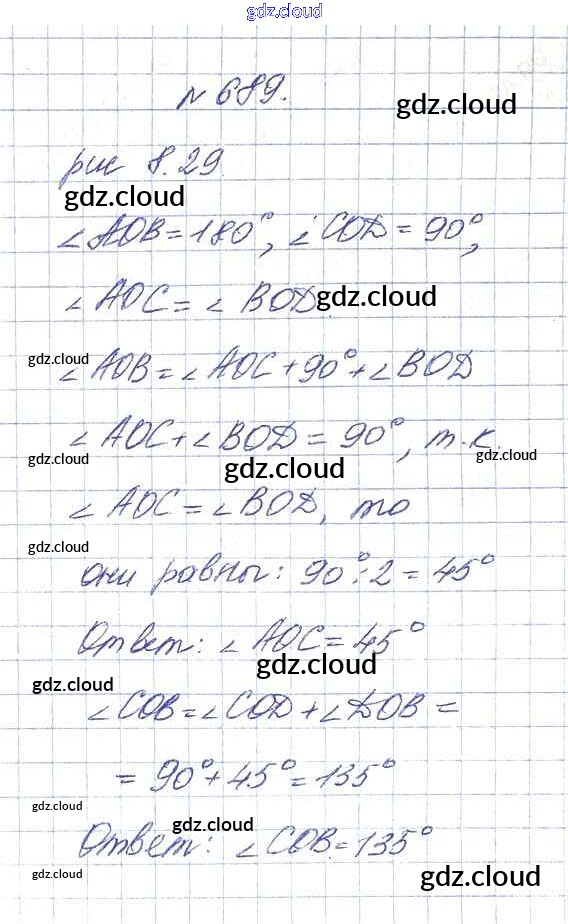 gdz.cloud
gdz.cloud
N 689.
gdz.cloud
рис 8.29
gdz.cloud
∠AOB = 180°, ∠COD = 90°,
∠AOC = ∠BOD gdz.cloud
gdz.cloud
∠AOB = ∠AOC + 90° + ∠BOD
∠AOC + ∠BOD = 90°, т.к.
gdz.cloud gdz.cloud gdz.cloud
∠AOC = ∠BOD, то
gdz.cloud
они равны: 90° : 2 = 45°
Ответ: ∠AOC = 45°
gdz.cloud
gdz.cloud
∠COB = ∠COD + ∠DOB =
= 90° + 45° = 135°
gdz.cloud
gdz.cloud
Ответ: ∠COB = 135°
gdz.cloud gdz.cloud